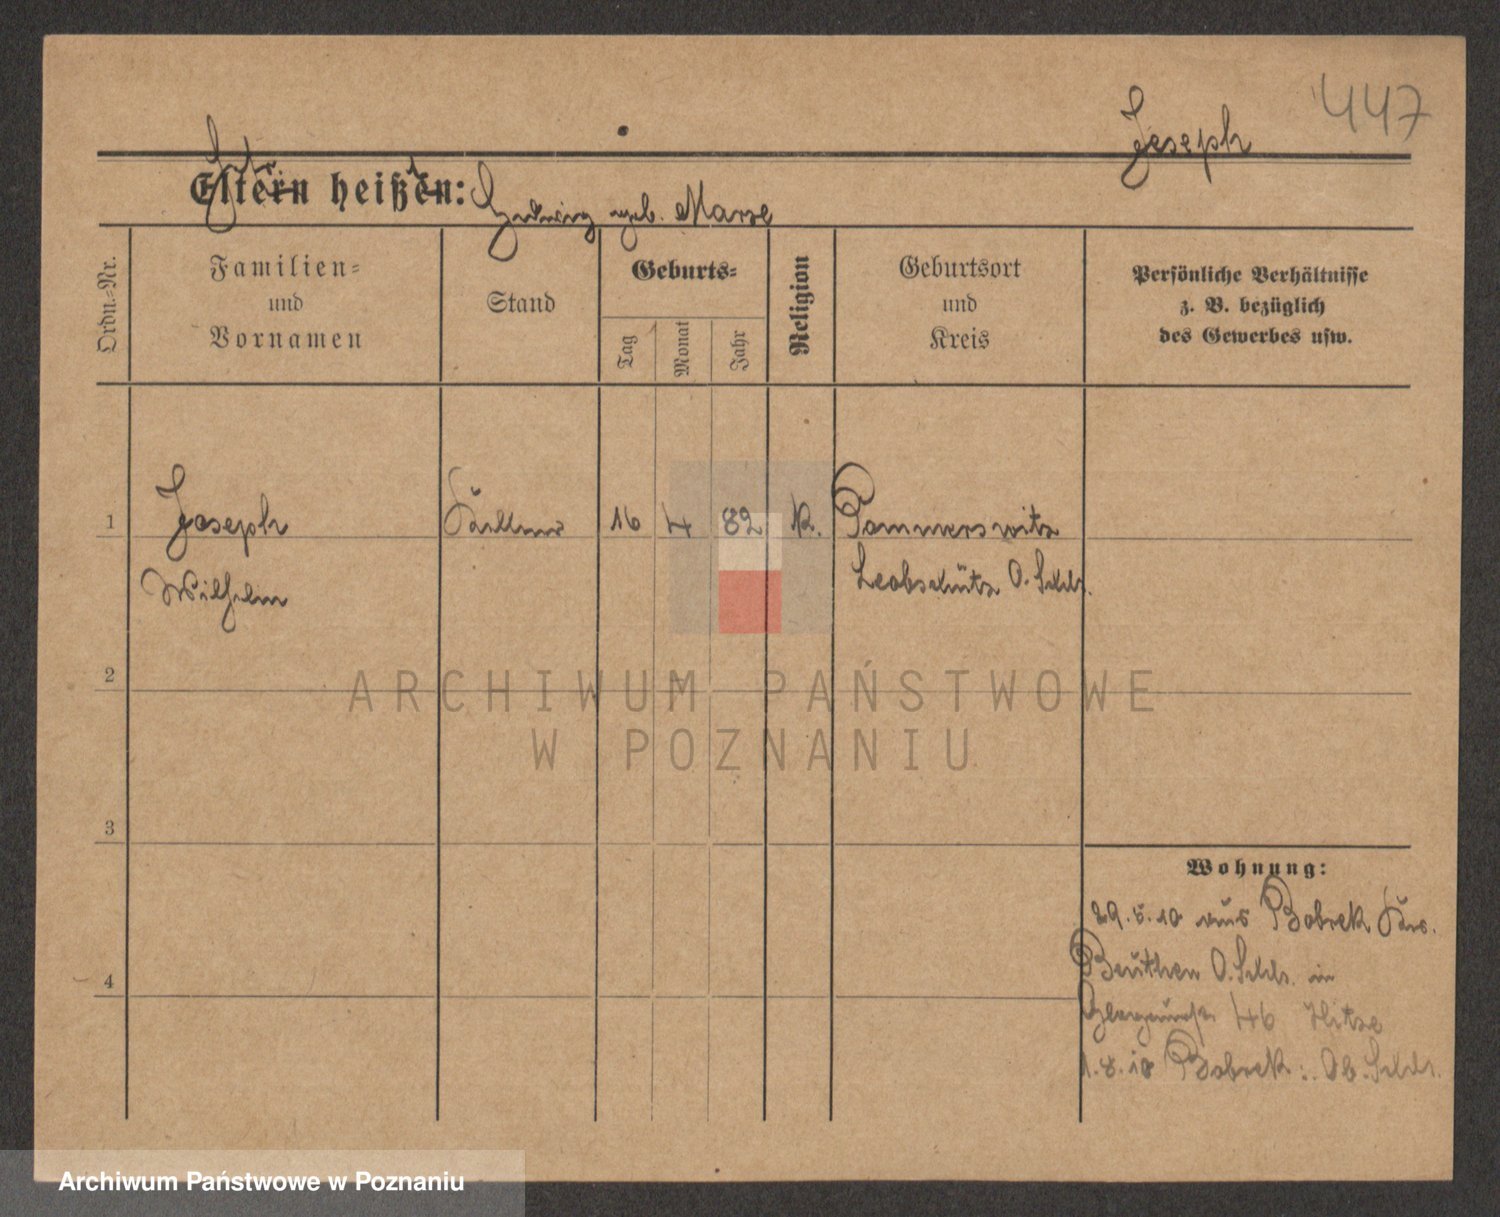 447
Joseph
Eltern heißen: Hedwig geb. Marze
Ordn.-Nr.
Familien-
und
Vornamen
Stand
Geburts-
Tag
Monat
Jahr
Religion
Geburtsort
und
Kreis
Persönliche Verhältnisse
z. B. bezüglich
des Gewerbes usw.
1 Joseph Kellner 16 4 82 k. Pommerswitz
Wilhelm Leobschütz O. Schls.
2
3
4
Wohnung:
29.5.10 aus Bobrek Krs.
Beuthen O. Schls. in
46 Hitze
1.8.10 Bobrek: Ob. Schls.
ARCHIWUM PAŃSTWOWE
W POZNANIU
Archiwum Państwowe w Poznaniu